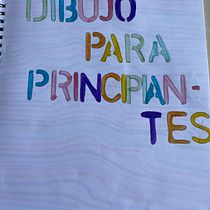 DIBUJO
PARA
PRINCIPIAN-
TES